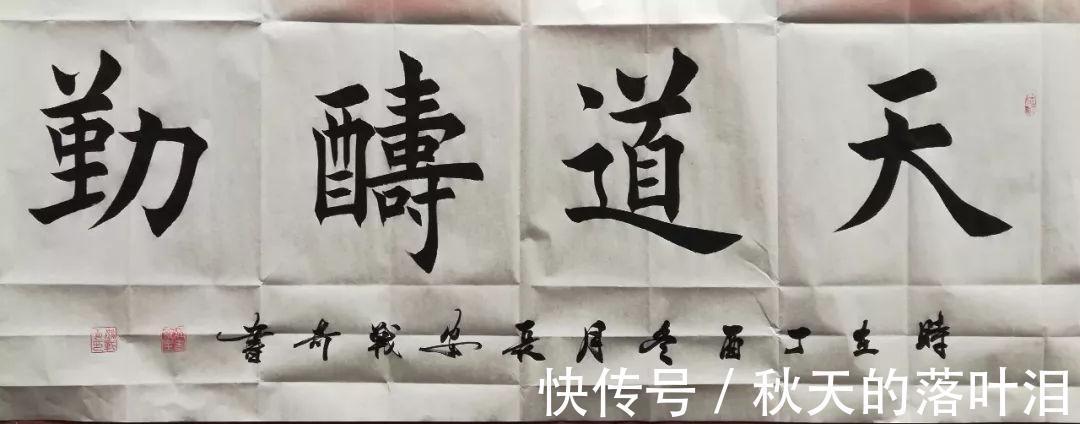 天道醻勤
時在丁酉冬月長安戰奇書
快传号 / 秋天的落叶泪